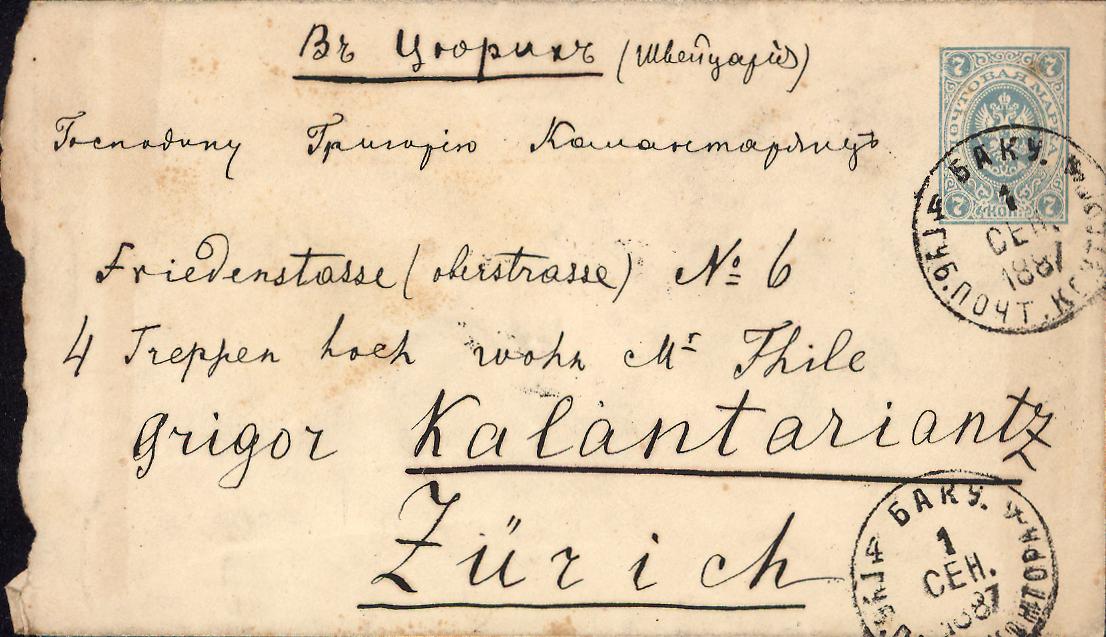 Въ Цюрихъ (Швейцарія)
Господину Григорію Калантарянцъ
Friedenstasse (oberstrasse) № 6
4 Treppen hoch wohn Mr Thile
Grigor Kalantariantz
Zürich
7 7
ПОЧТОВАЯ МАРКА
7 КОП. 7
БАКУ.
1
СЕН.
1887
ПОЧТ. КОНТОРА
БАКУ.
1
СЕН.
1887
КОНТОРА